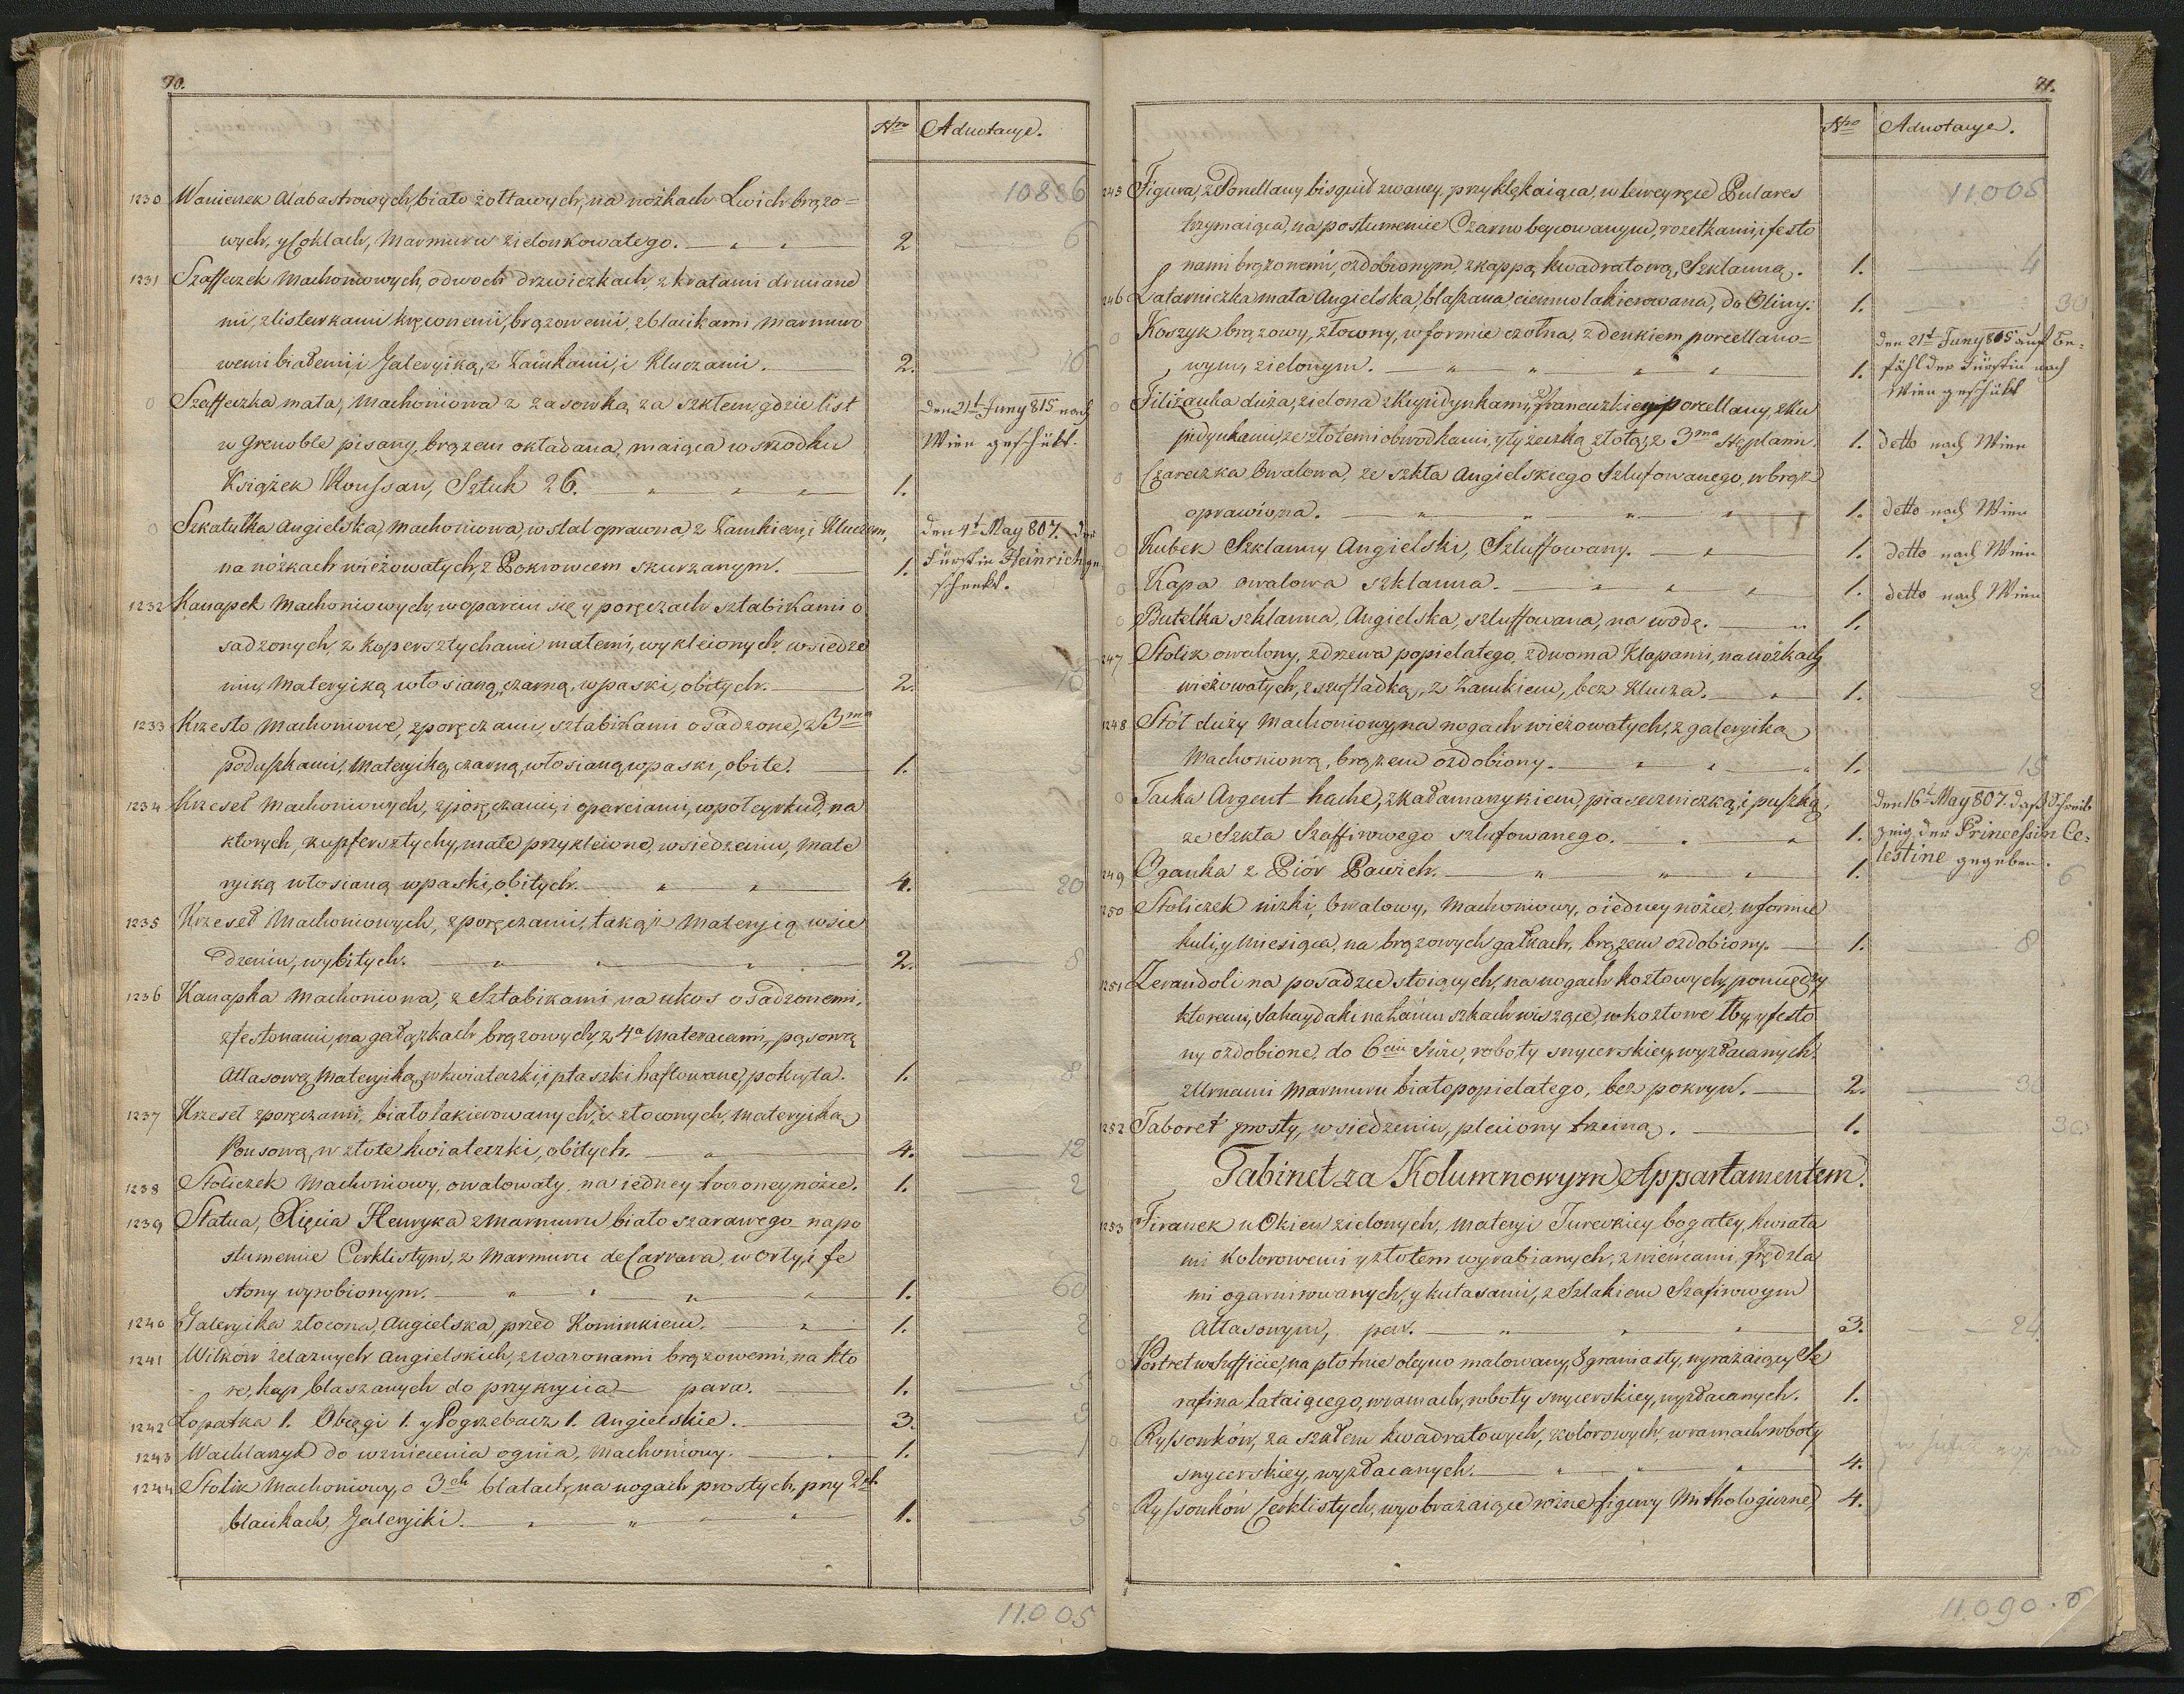 70.
Nro Adnotacye.
10886
1230 Wanienek Alabastrowych, biało żółtawych, na nóżkach Lwich brązo=
wych, y Soklach, Marmuru zielonkowatego. 2 6
1231 Szaffeczek Machoniowych, o dwoch drzwiczkach, z kratami druciane
mi, z listewkami kręconemi, brązowemi, z blacikami Marmuro
wemi białemi, i Galeryiką, z Zamkami, i Kluczami. 2. 16
0 Szaffeczka mała, Machoniowa z zasowką za szkłem, gdzie list
w Grenoble pisany, brązem okładana, maiąca w srzodku
Książek Roussau, Sztuk 26. 1.
den 21t Juny 815 nach
Wien geschükt.
0 Szkatułka Angielska, Machoniowa, w stal oprawna, z Zamkiem, i Kluczem,
na nóżkach wieżowatych, z Pokrowcem skurzanym. 1.
den 4t May 807. der
Fürstin Heinrich ge
schenkt.
1232 Kanapek Machoniowych, w oparciu się y poręczach sztabikami o
sadzonych, z kopersztychami małemi, wykleionych, w siedze
niu, Materyiką włosianą, czarną, w paski, obitych. 2. 10
1233 Krzesło Machoniowe, z poręczami, sztabikami osadzone, z 3ma
poduszkami, Materyiką czarną, włosianą w paski, obite. 1. 3
1234 Krzeseł Machoniowych, z poręczami, i oparciami, w poł cyrkuł, na
ktorych, kupfersztychy, małe przykleione, w siedzeniu, Mate
ryiką włosianą w paski, obitych. 4. 20
1235 Krzeseł Machoniowych, z poręczami, takąż Materyią w sie
dzeniu, wybitych. 2. 8
1236 Kanapka Machoniowa, z Sztabikami, na ukos osadzonemi,
z festonami, na gałązkach brązowych, z 4a Materacami, pąsową
Atłasową Materyiką, w kwiateczki, i ptaszki haftowane, pokryta. 1. 8
1237 Krzeseł z poręczami, biało lakierowanych, i złoconych, materyiką
Ponsową, w złote kwiateczki, obitych. 4. 12
1238 Stoliczek Machoniowy, owalowaty, na iedney toczoney nóżce. 1. 2
1239 Statua, Xięcia Henryka z Marmuru biało szarawego na po
stumencie Cerklistym, z Marmuru de Carrara, w Orły, i fe
stony wyrobionym. 1. 60
1240 Galeryika złocona, Angielska, przed Kominkiem. 1. 2
1241 Wilków Żelaznych Angielskich, z wazonami brązowemi, na kto
re, kap blaszanych do przykrycia para. 1. 5
1242 Łopatka 1. Obcęgi 1. y Pogrzebacz 1. Angielskie. 3. 3
1243 Wachlarzyk do wzniecenia ognia, Machoniowy. 1. 1
1244 Stolik Machoniowy, o 3ch blatach, na nogach prostych, przy 2ch
blacikach, Galeryiki. 1. 5
11.005
71.
Nro Adnotacye.
11005
245 Figura, z Porcellany bisquit zwaney, przyklękaiąca, w lewey ręce Pulares
trzymaiąca, na postumencie Czarno beycowanym, rozetkami, i festo
nami brązonemi, ozdobionym, z kappą kwadratową, Szklanną. 1. 4
246 Latarniczka mała Angielska, blaszana ciemno lakierowana, do Oliwy. 1. 30
0 Koszyk brązowy, złocony, w formie czołna, z denkiem porcellano=
wym, zielonym. 1.
den 21t Juny 805 auf Be=
fähl der Fürstin nach
Wien geschükt
0 Filiżanka duża, zielona z Kupidynkami, francuzkiey porcellany, z Ku
pidynkami, ze złotemi obwodkami, y łyżeczką złotą, z 3ma steplami. 1. detto nach Wien
0 Czareczka Owalowa, ze szkła Angielskiego Szlufowanego, w brąz
oprawiona. 1. detto nach Wien
0 Kubek Szklanny Angielski, Szluffowany. 1. detto nach Wien
0 Kapa owalowa szklanna. 1. detto nach Wien
0 Butelka szklanna, Angielska, szluffowana, na wodę. 1.
247 Stolik owalony, z drzewa popielatego, z dwoma Klapami, na nóżkach
wieżowatych, z szufladką, z Zamkiem, bez Klucza. 1. 2
1248 Stół duży Machoniowy, na nogach wieżowatych, z galeryiką
Machoniową, brązem ozdobiony. 1. 15
0 Tacka Argent-hache, z kałamarzykiem, piaseczniczką, i puszką,
ze Szkła Szaffirowego szlufowanego. 1.
den 16t May 807. dass Schreib
zeug, der Princessin Ce=
lestine gegeben.
249 Oganka z Piór Pawich. 1. 6
1250 Stoliczek nizki, Owalowy, Machoniowy, o iedney nóżce, w formie
kuli, y Miesiąca, na brązowych gałkach, brązem ozdobiony. 1. 8
1251 Zerandoli na posadzce stoiących, na nogach kozłowych, pomiędzy
ktoremi, Sahaydaki na łańcuszkach wiszące, w kozłowe łby, y festo
ny ozdobione, do 6ciu Swic, roboty snycerskiey, wyzłacanych,
z Urnami Marmuru białopopielatego, bez pokryw. 2. 30
1252 Taboret prosty, w siedzeniu, pleciony trzciną. 1. 30
Gabinet za Kolumnowym Appartamentem.
1253 Firanek u Okien zielonych, Materyi Tureckiey bogatey, kwiata
mi kolorowemi y złotem wyrabianych, z wiencami, frędzla
mi ogarnirowanych, y kutasami, z Szlakiem Szafirowym
Atłasowym, par. 3. 24
0 Portret w Sufficie, na płotnie oleyno malowany, 8 graniasty, wyrażaiący Se
rafina lataiącego, w ramach, roboty snycerskiey, wyzłacanych. 1.
0 Ryssonków, za szkłem kwadratowych, kolorowych, w ramach roboty
snycerskiey, wyzłacanych. 4.
0 Ryssonków Cerklistych, wyobrażaiące rożne figury Mithologiczne, 4.
11.090.6